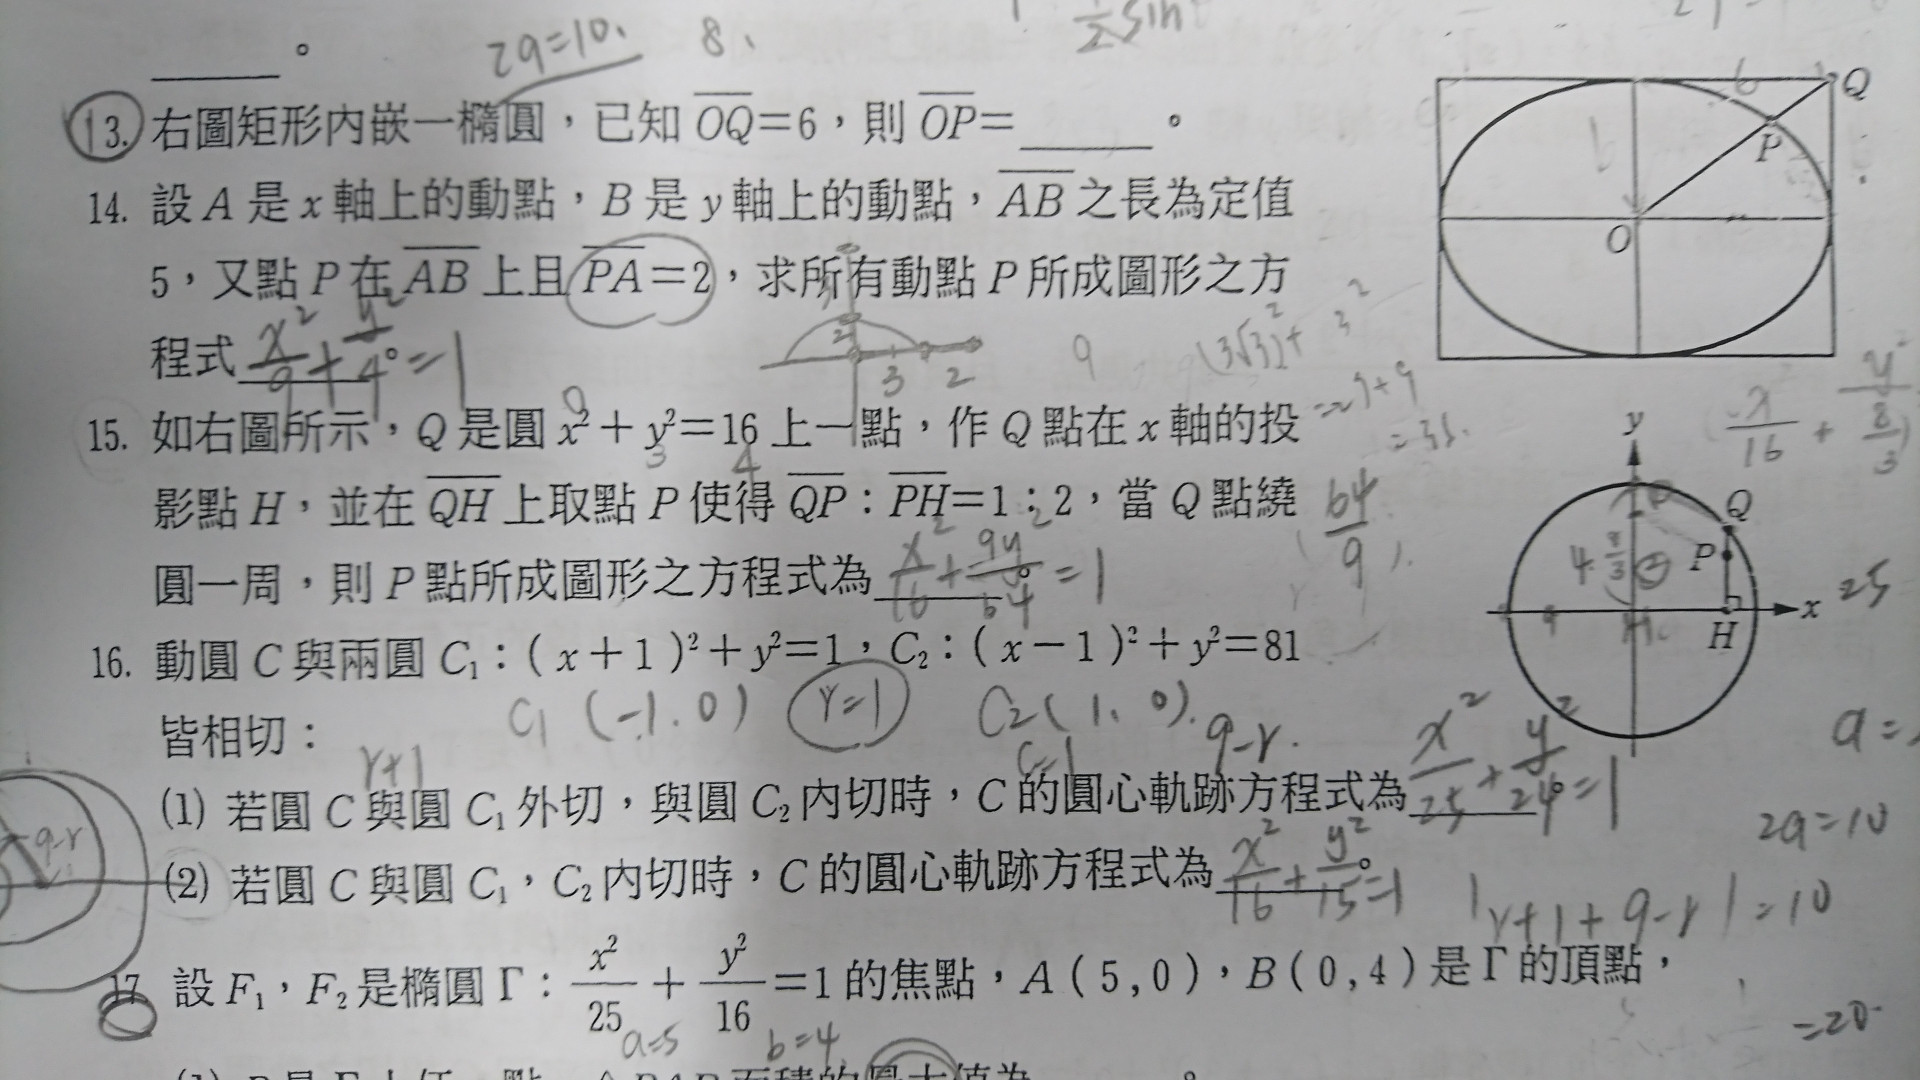 2a=10、 8、
1/2 sin
______。
13. 右圖矩形內嵌一橢圓，已知 OQ=6，則 OP=______。
Q
P
O
14. 設 A 是 x 軸上的動點，B 是 y 軸上的動點，AB 之長為定值
5，又點 P 在 AB 上且 PA=2，求所有動點 P 所成圖形之方
程式 x²/9 + y²/4 = 1。
2 3 2
9 (3√3)²+ 3²
x/16 + y²/(8/3)
15. 如右圖所示，Q 是圓 x²+y²=16 上一點，作 Q 點在 x 軸的投
影點 H，並在 QH 上取點 P 使得 QP：PH=1：2，當 Q 點繞
64/9
圓一周，則 P 點所成圖形之方程式為 x²/16 + 9y²/64 = 1。
y
Q
P
x
H
25
16. 動圓 C 與兩圓 C₁：(x+1)²+y²=1，C₂：(x−1)²+y²=81
皆相切：
C₁ (-1.0) r=1 C₂(1、0). 9-r.
r+1 c=1
(1) 若圓 C 與圓 C₁ 外切，與圓 C₂ 內切時，C 的圓心軌跡方程式為 x²/25 + y²/24 = 1。
2a=10
9-r
(2) 若圓 C 與圓 C₁，C₂ 內切時，C 的圓心軌跡方程式為 x²/16 + y²/15 = 1。
|r+1+9-r|=10
17. 設 F₁，F₂ 是橢圓 Γ：x²/25 + y²/16 = 1 的焦點，A(5,0)，B(0,4)是 Γ 的頂點，
a=5 b=4
=20